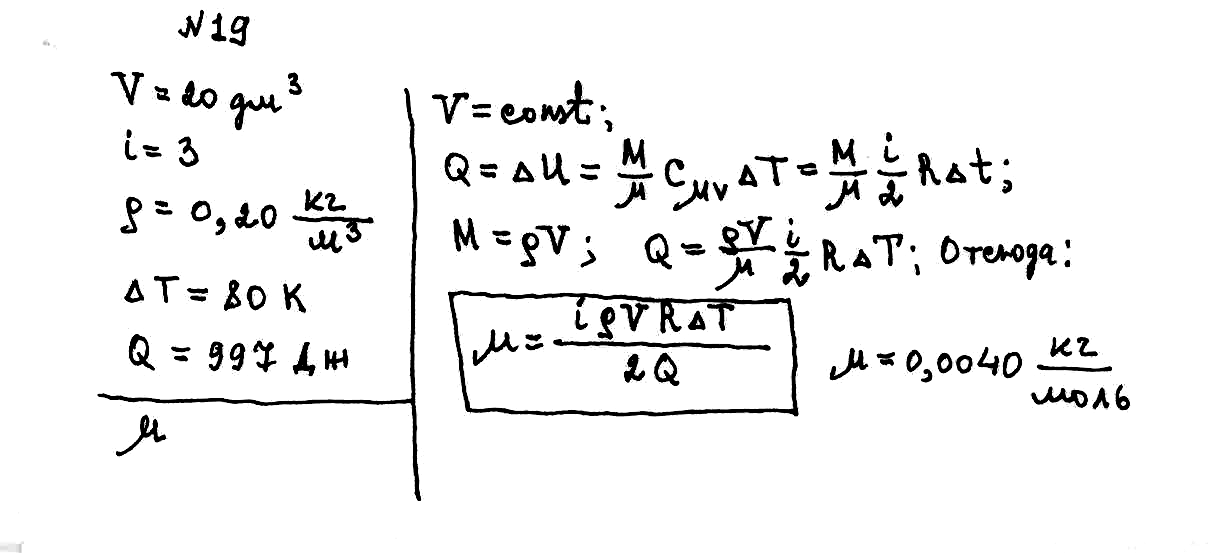 №19
V = 20 дм³
i = 3
ρ = 0,20 кг/м³
ΔT = 80 K
Q = 997 Дж
μ
V = const;
Q = ΔU = M/μ C_μV ΔT = M/μ i/2 RΔt;
M = ρV; Q = ρV/μ i/2 RΔT; Отсюда:
μ = iρVRΔT / 2Q μ = 0,0040 кг/моль